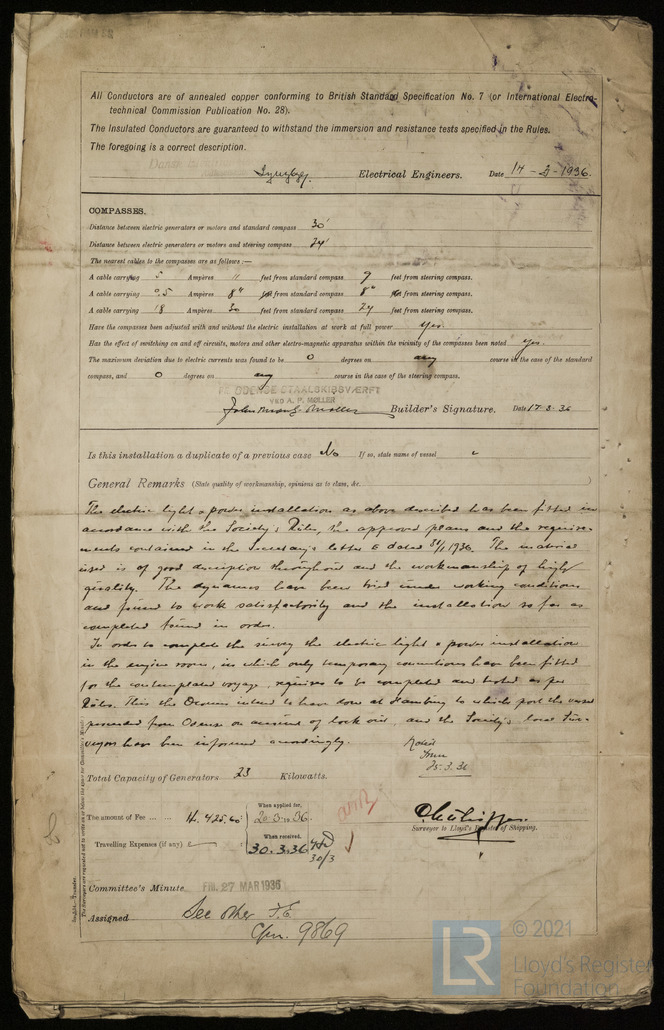 All Conductors are of annealed copper conforming to British Standard Specification No. 7 (or International Electro-
technical Commission Publication No. 28).
The Insulated Conductors are guaranteed to withstand the immersion and resistance tests specified in the Rules.
The foregoing is a correct description.
Electrical Engineers. Date 14-3-1936.
COMPASSES.
Distance between electric generators or motors and standard compass 30'
Distance between electric generators or motors and steering compass 24'
The nearest cables to the compasses are as follows:—
A cable carrying 5 Ampères 11 feet from standard compass 9 feet from steering compass.
A cable carrying 0.5 Ampères 8" from standard compass 8" from steering compass.
A cable carrying 18 Ampères 30 feet from standard compass 24 feet from steering compass.
Have the compasses been adjusted with and without the electric installation at work at full power yes.
Has the effect of switching on and off circuits, motors and other electro-magnetic apparatus within the vicinity of the compasses been noted yes.
The maximum deviation due to electric currents was found to be 0 degrees on any course in the case of the standard
compass, and 0 degrees on any course in the case of the steering compass.
ODENSE STAALSKIBSVÆRFT
VED A. P. MØLLER
Builder's Signature. Date 17-3-36
Is this installation a duplicate of a previous case No If so, state name of vessel
General Remarks (State quality of workmanship, opinions as to class, &c. )
The electric light & power installation as above described has been fitted in
accordance with the Society's Rules, the approved plans and the require-
ments contained in the Secretary's letter E dated 31/1 1936. The material
used is of good description throughout and the workmanship of high
quality. The dynamos have been tried under working conditions
and found to work satisfactorily and the installation so far as
completed found in order.
In order to complete the survey the electric light & power installation
in the engine room, in which only temporary connections have been fitted
for the contemplated voyage, requires to be completed and tested as per
Rules. This the Owners intend to have done at Hamburg to which port the vessel
proceeded from Odense on account of lock out, and the Society's local Sur-
veyors have been informed accordingly.
Noted
25.3.36
Total Capacity of Generators 23 Kilowatts.
The amount of Fee ... ... Kr. 425.60 When applied for, 20.3.1936
Travelling Expenses (if any) When received, 30.3.36 30/3
Surveyor to Lloyd's Register of Shipping.
Committee's Minute FRI. 27 MAR 1936
Assigned See other F.E.
Cpn. 9869
The Surveyors are requested not to write on or below the space for Committee's Minute.
LR
© 2021
Lloyd's Register
Foundation